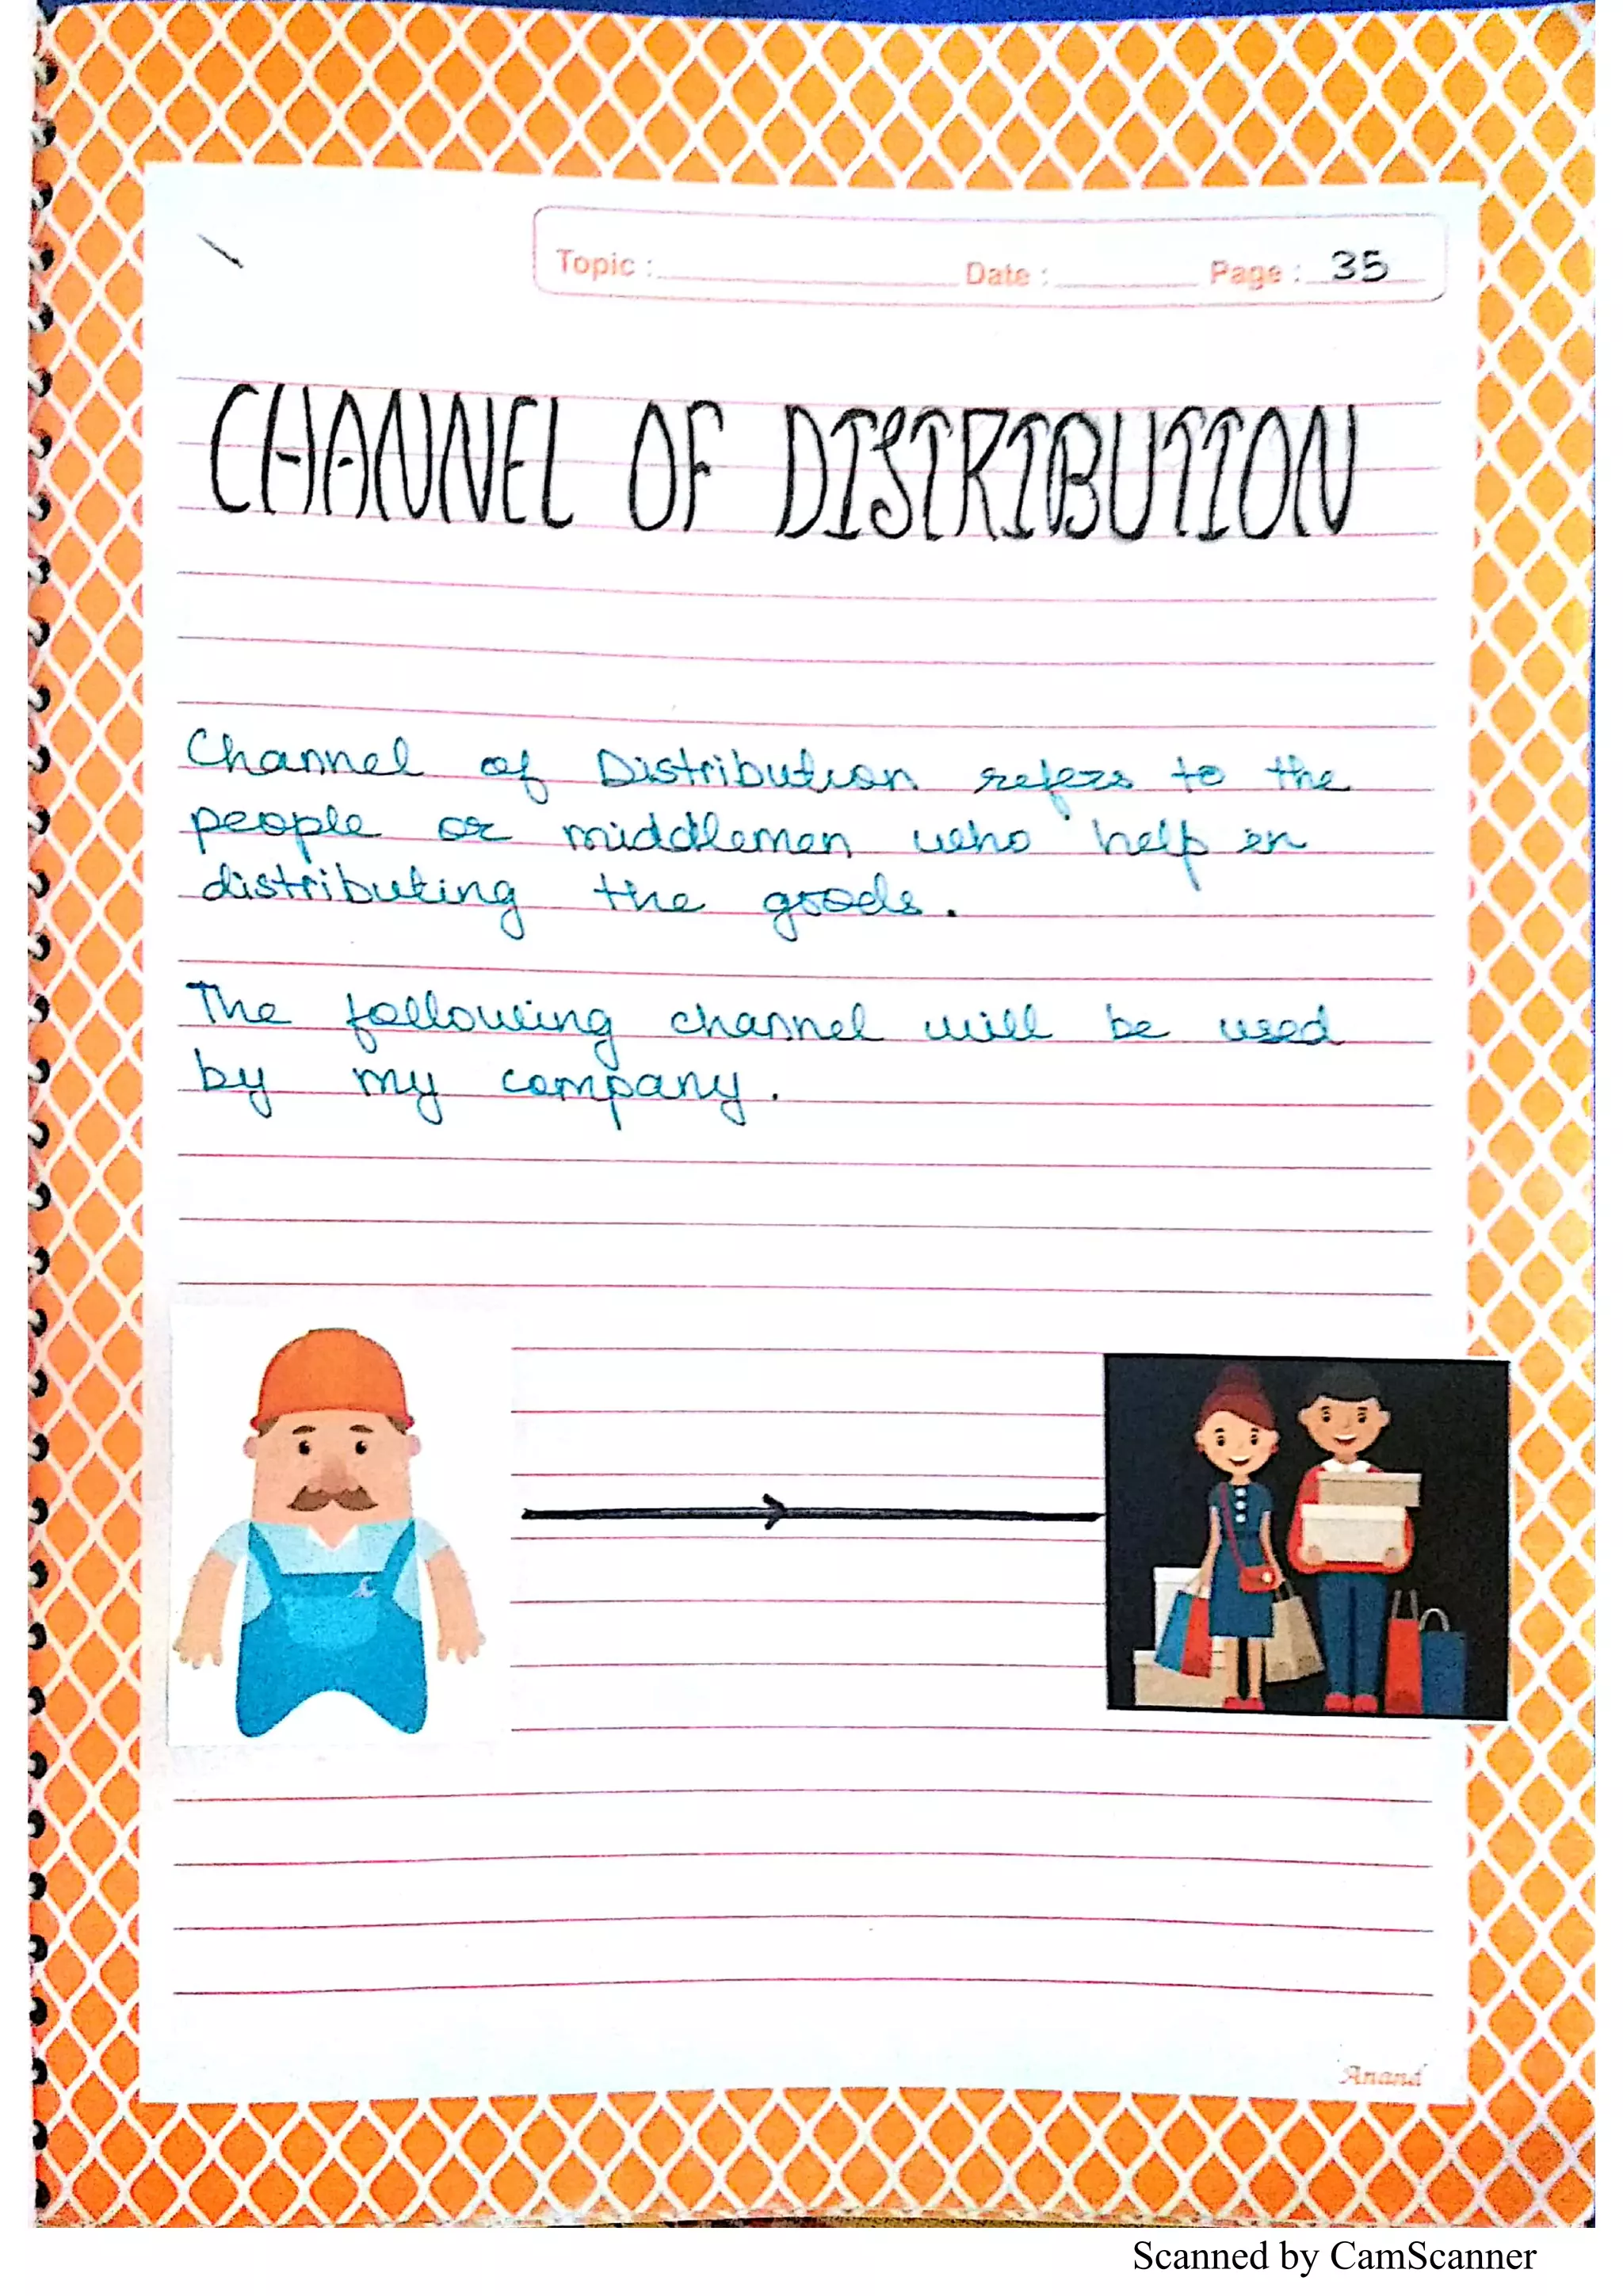 Topic : Date : Page : 35
CHANNEL OF DISTRIBUTION
Channel of Distribution refers to the
people or middlemen who help in
distributing the goods.
The following channel will be used
by my company.
Anand
Scanned by CamScanner